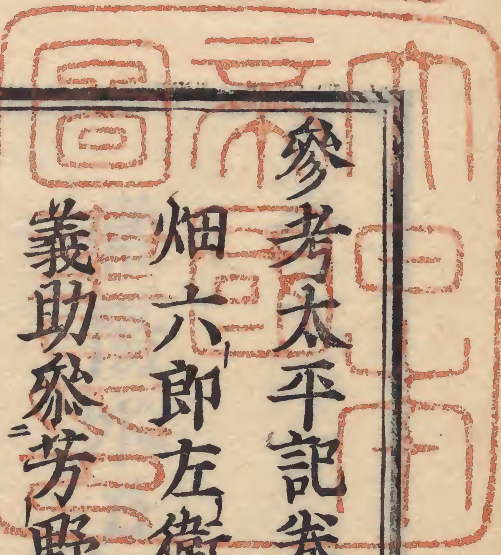 參考太平記卷
畑六郎左衛
義助叅芳野